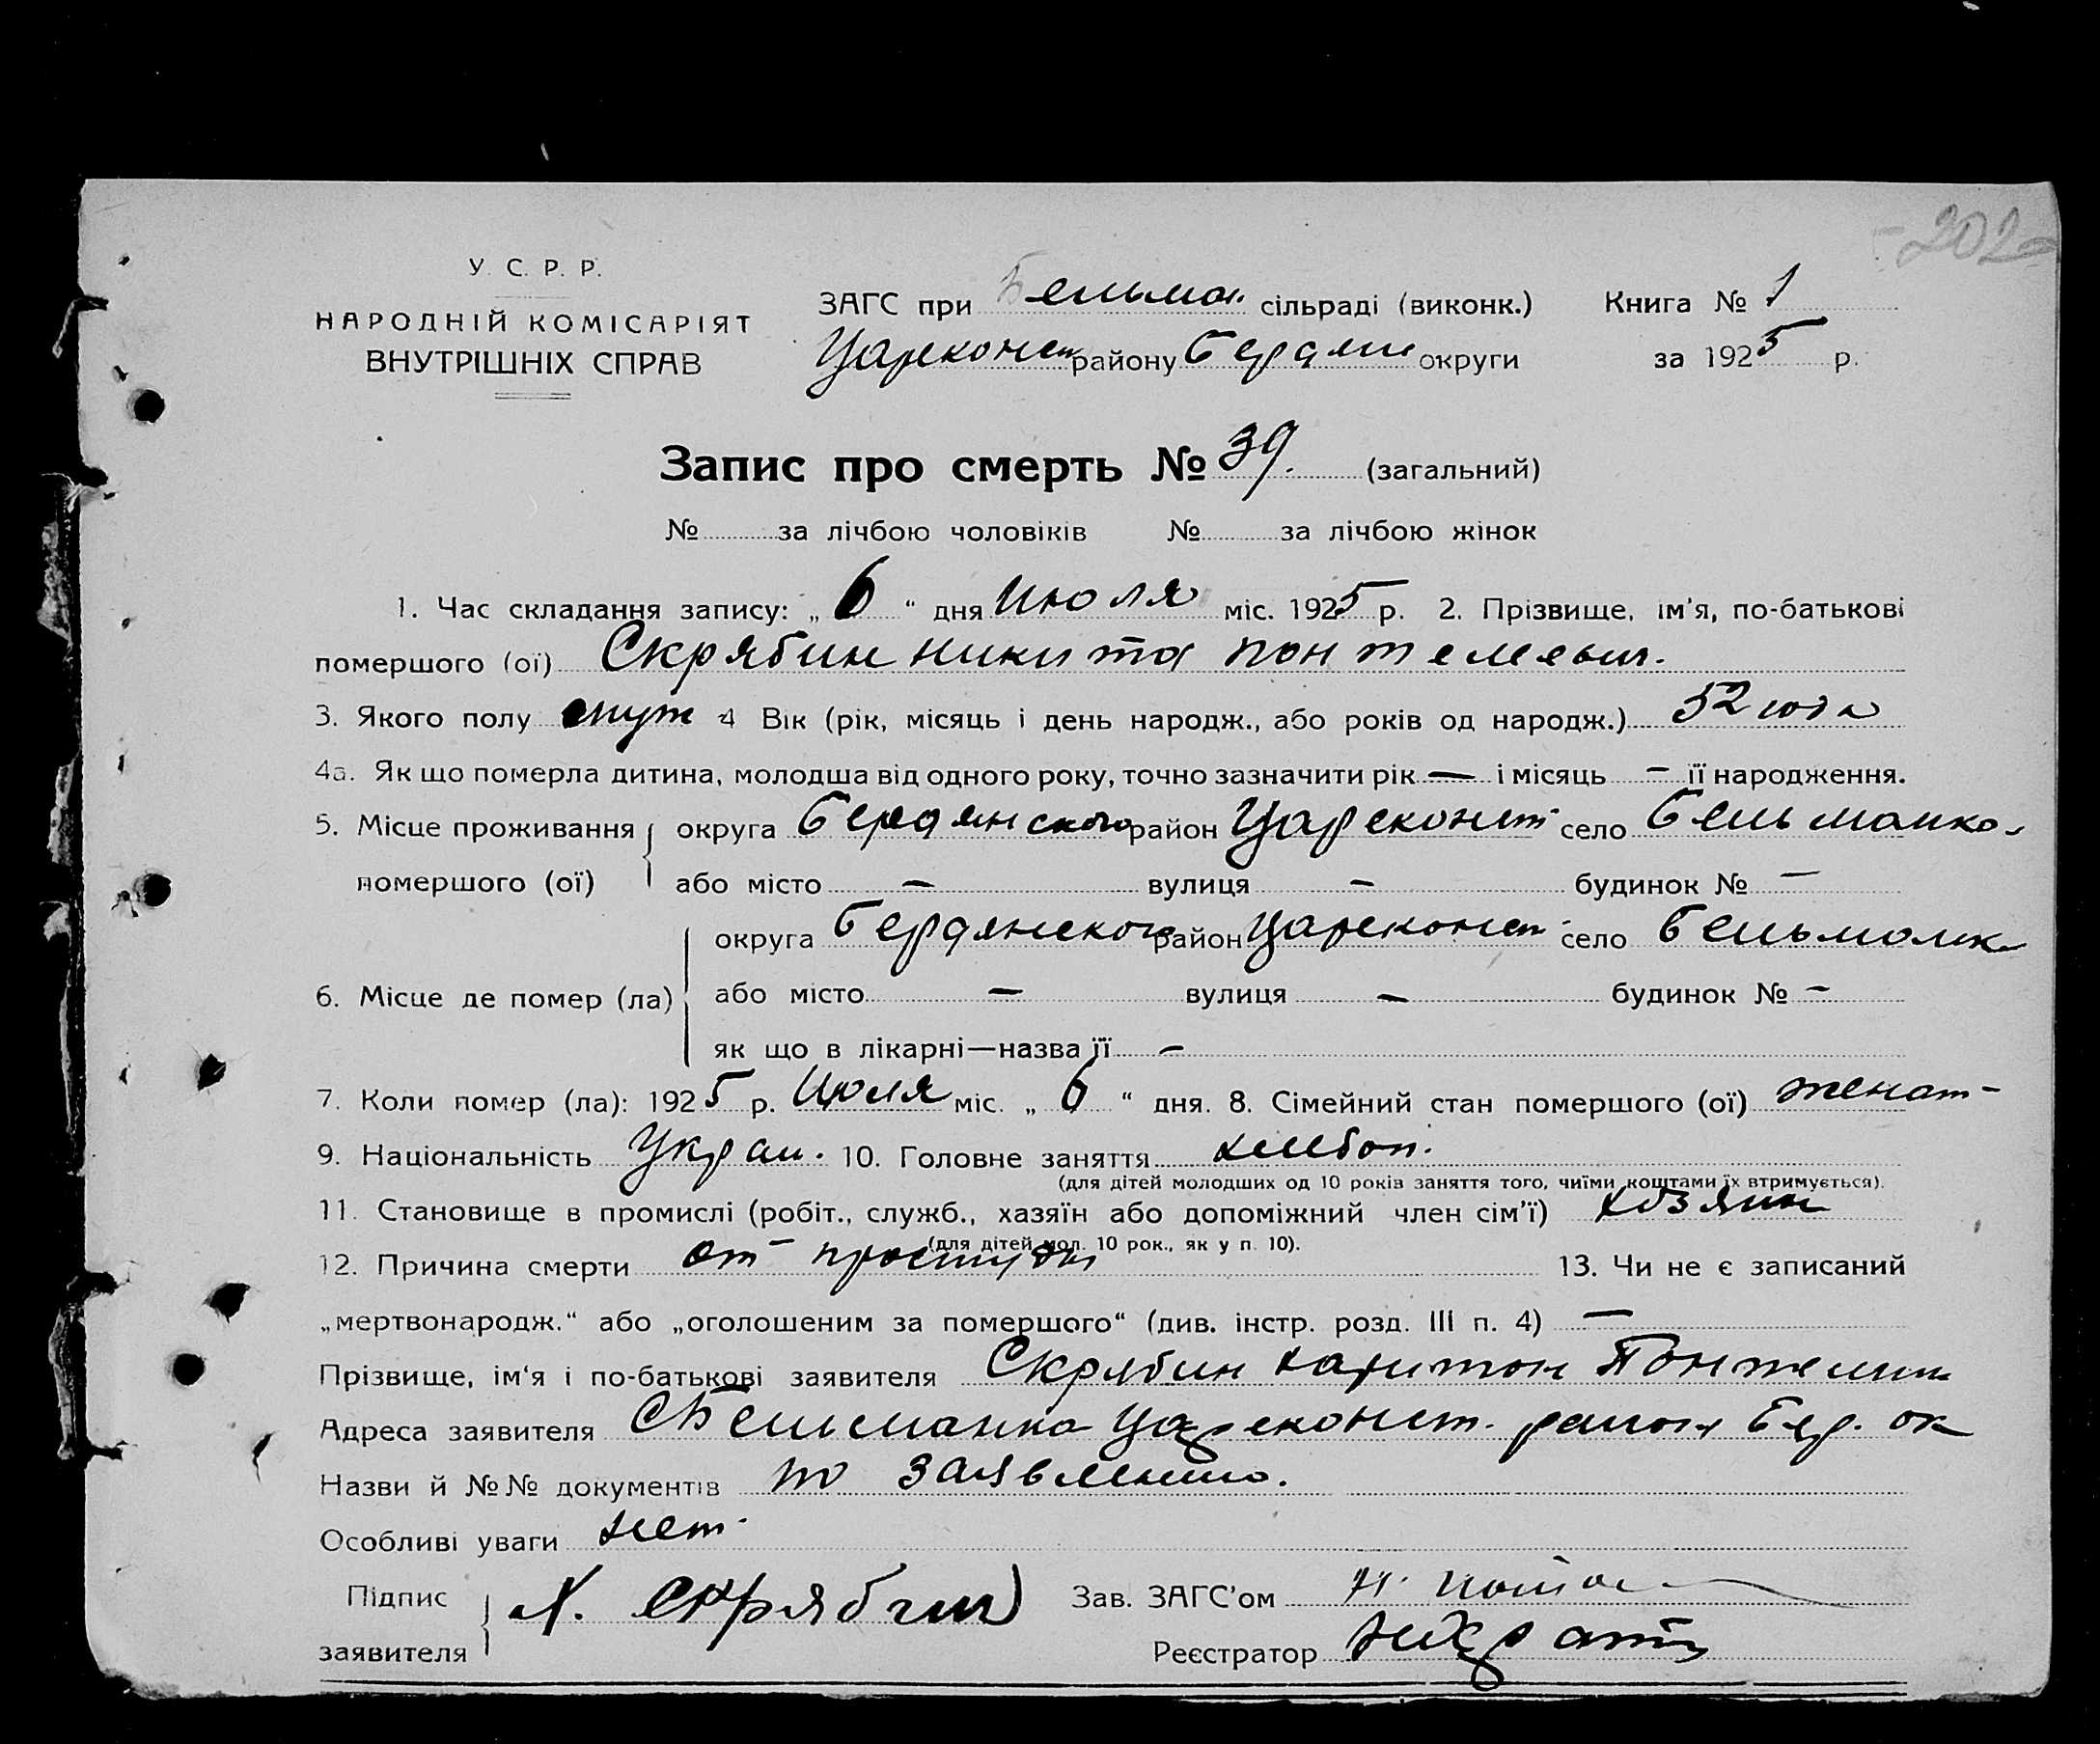 -202-
У. С. Р. Р.
НАРОДНІЙ КОМІСАРІЯТ
ВНУТРІШНІХ СПРАВ
ЗАГС при Бельман. сільраді (виконк.) Книга № 1
Цареконст району Бердян округи за 1925 р.
Запис про смерть № 39. (загальний)
№ за лічбою чоловіків № за лічбою жінок
1. Час складання запису: „ 6 “ дня Июля міс. 1925 р. 2. Прізвище, ім'я, по-батькові
помершого (ої) Скрябин Никита Понтелевич.
3. Якого полу муж 4 Вік (рік, місяць і день народж., або років од народж.) 52 года
4а. Як що померла дитина, молодша від одного року, точно зазначити рік — і місяць — її народження.
5. Місце проживання округа Бердянского район Цареконст село Бельманка
помершого (ої) або місто — вулиця — будинок № —
округа Бердянского район Цареконст село Бельманк
6. Місце де помер (ла) або місто — вулиця — будинок № —
як що в лікарні—назва її —
7. Коли помер (ла): 1925 р. Июля міс. „ 6 “ дня. 8. Сімейний стан помершого (ої) женат
9. Національність Украи. 10. Головне заняття хлебоп.
(для дітей молодших од 10 років заняття того, чиїми коштами їх втримується).
11. Становище в промислі (робіт., служб., хазяїн або допоміжний член сім'ї) хозяин
(для дітей мол. 10 рок., як у п. 10).
12. Причина смерти от простуды 13. Чи не є записаний
„мертвонародж.“ або „оголошеним за помершого“ (див. інстр. розд. III п. 4) —
Прізвище, ім'я і по-батькові заявителя Скрябин Харитон
Адреса заявителя С Бельманка Цареконст. район Бер. ок
Назви й №№ документів по заявлению.
Особливі уваги нет
Підпис Х. Скрябин Зав. ЗАГС'ом
заявителя Реєстратор